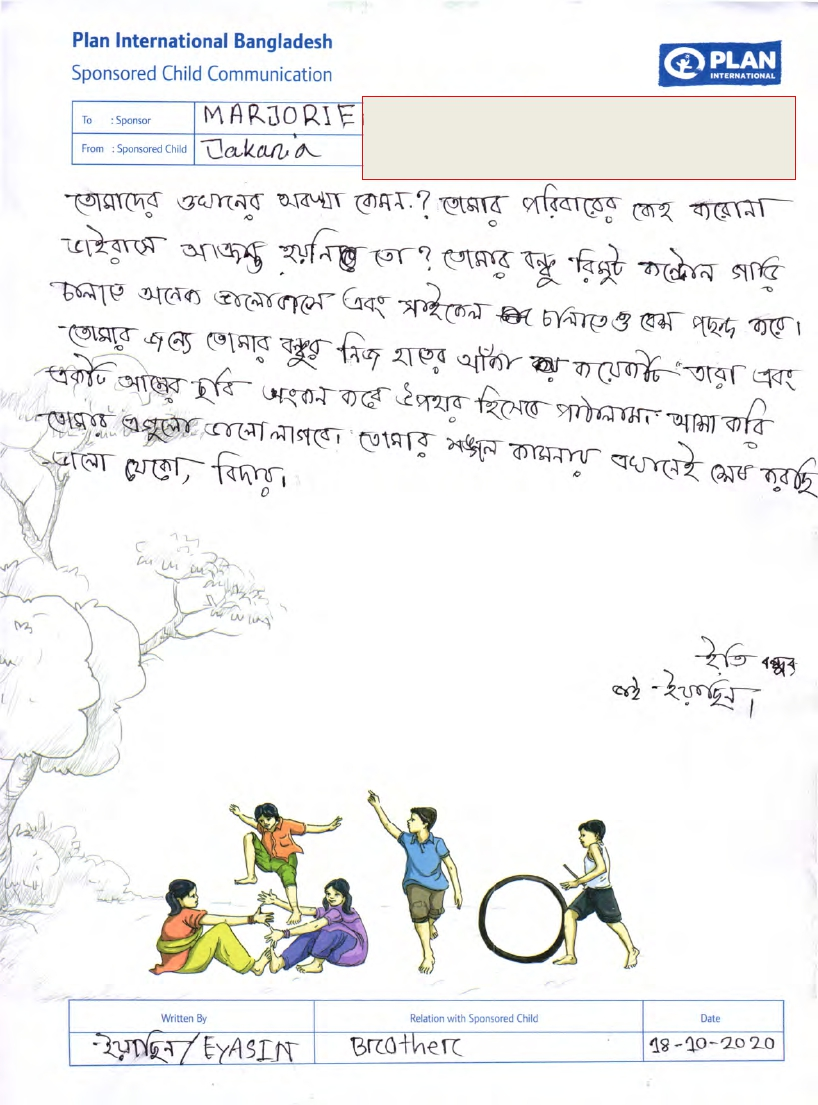 Plan International Bangladesh
Sponsored Child Communication
PLAN
INTERNATIONAL
To : Sponsor MARJORIE
From : Sponsored Child Jakaria
তোমাদের ওখানের অবস্থা কেমন? তোমার পরিবারের কেহ করোনা
ভাইরাসে আক্রান্ত হয়নি তো? তোমার বন্ধু রিমুট কন্ট্রোল গাড়ি
চালাতে অনেক ভালোবাসে এবং সাইকেল চালাতেও বেশ পছন্দ করে।
তোমার জন্যে তোমার বন্ধুর নিজ হাতের আঁকা কয়েকটি তারা এবং
একটি আমের ছবি অংকন করে উপহার হিসেবে পাঠালাম। আশা করি
তোমার এগুলো ভালো লাগবে। তোমার মঙ্গল কামনায় এখানেই শেষ করছি
ভালো থেকো, বিদায়।
ইতি বন্ধুর
ভাই - ইয়াছিন।
Written By Relation with Sponsored Child Date
ইয়াছিন / EYASIN Brother 18-10-2020